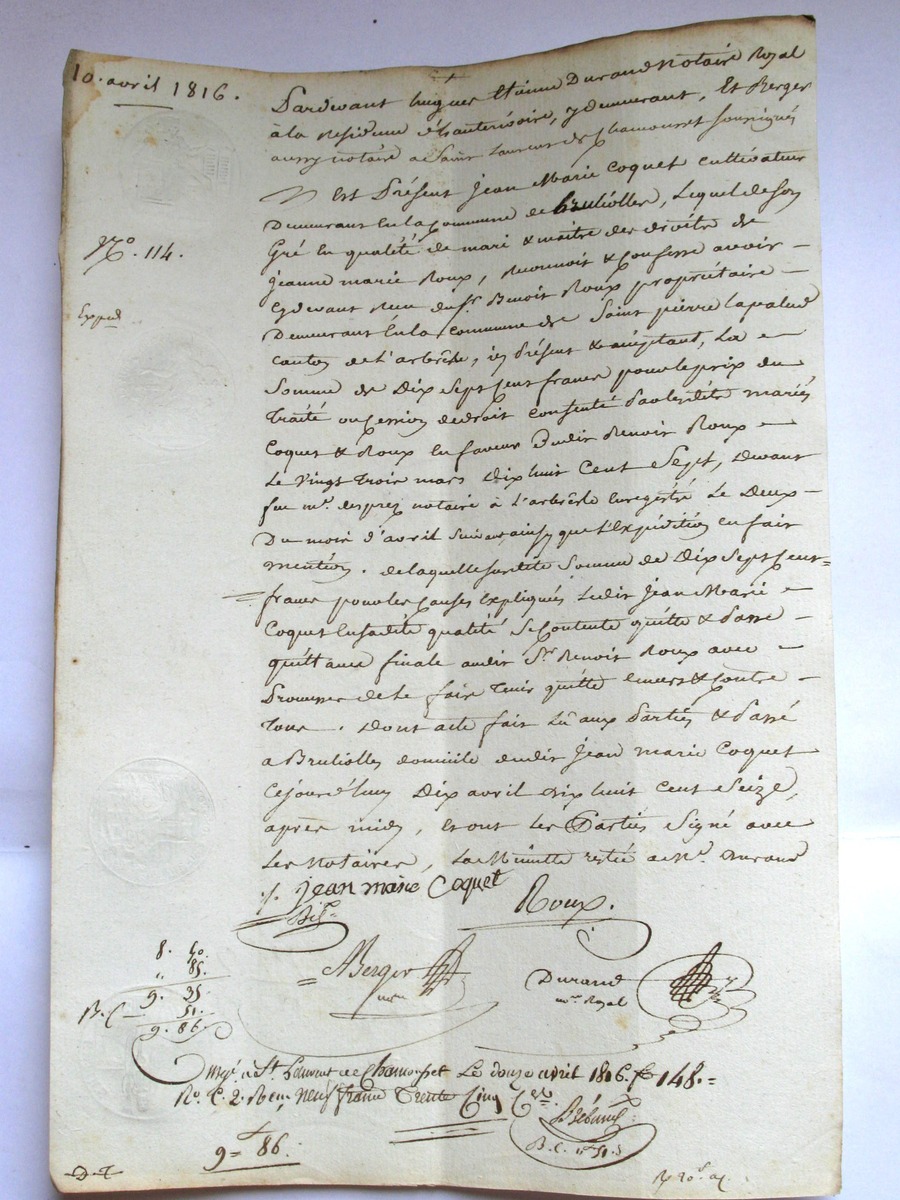 10. avril 1816.
Pardevant hugues Etienne Durand Notaire Royal
à la Residence d'hauterivoire, y demeurant, Et Berger
aussy notaire a Saint Laurent de Chamousset soussignés
Est Présent Jean Marie Coquet cultivateur
Demeurant En la Commune de Brulliolles, Lequel de son
Nº. 114.
Gré En qualité de mari & maitre des droits de
Jeanne marie Roux, Reconnoit & Confesse avoir
Exped
Cydevant Reçu du Sr. Benoit Roux propriétaire
Demeurant En la Commune de Saint pierre Lapalud
Canton de L'arbresle, ici Présent & acceptant, La
Somme de Dix Sept Cent francs pour le prix du
Traité ou Cession de droit Consenti Par lesdits mariés
Coquet & Roux En faveur Dudit Benoit Roux
Le Vingt Trois mars Dix huit Cent Sept, Devant
feu me. desprez notaire à L'arbresle Enregistré Le Deux
Du mois d'avril Suivant ainsy que L'Expédition En fait
mention. de laquelle susdite Somme de Dix Sept Cent
francs pour les Causes Expliqués Ledit Jean Marie
Coquet En sadite qualité Se Contente quitte & Passe
quittance finale audit Sr. Benoit Roux avec
Promesse de Le faire Tenir quitte Envers & Contre
Tous. Dont acte fait Lu aux Parties & Passé
a Brulliolles domicile dudit Jean Marie Coquet
Cejourd'huy Dix avril Dix huit Cent Seize,
après midy, Et ont Les Parties Signé avec
Les Notaires, La Minutte restée a Me. Durand
Jean marie Coquet
Roux.
8. 50.
" 85.
9. 35
B. C 51.
9. 86.
ABerger
Durand
nore Royal
Enregé. à St. Laurent de Chamousset Le douze avril 1816. fo 148.
Ro. C. 2. Reçu neuf francs Trente Cinq Ces.
B. C. 51. s
9 = 86.
D. T.